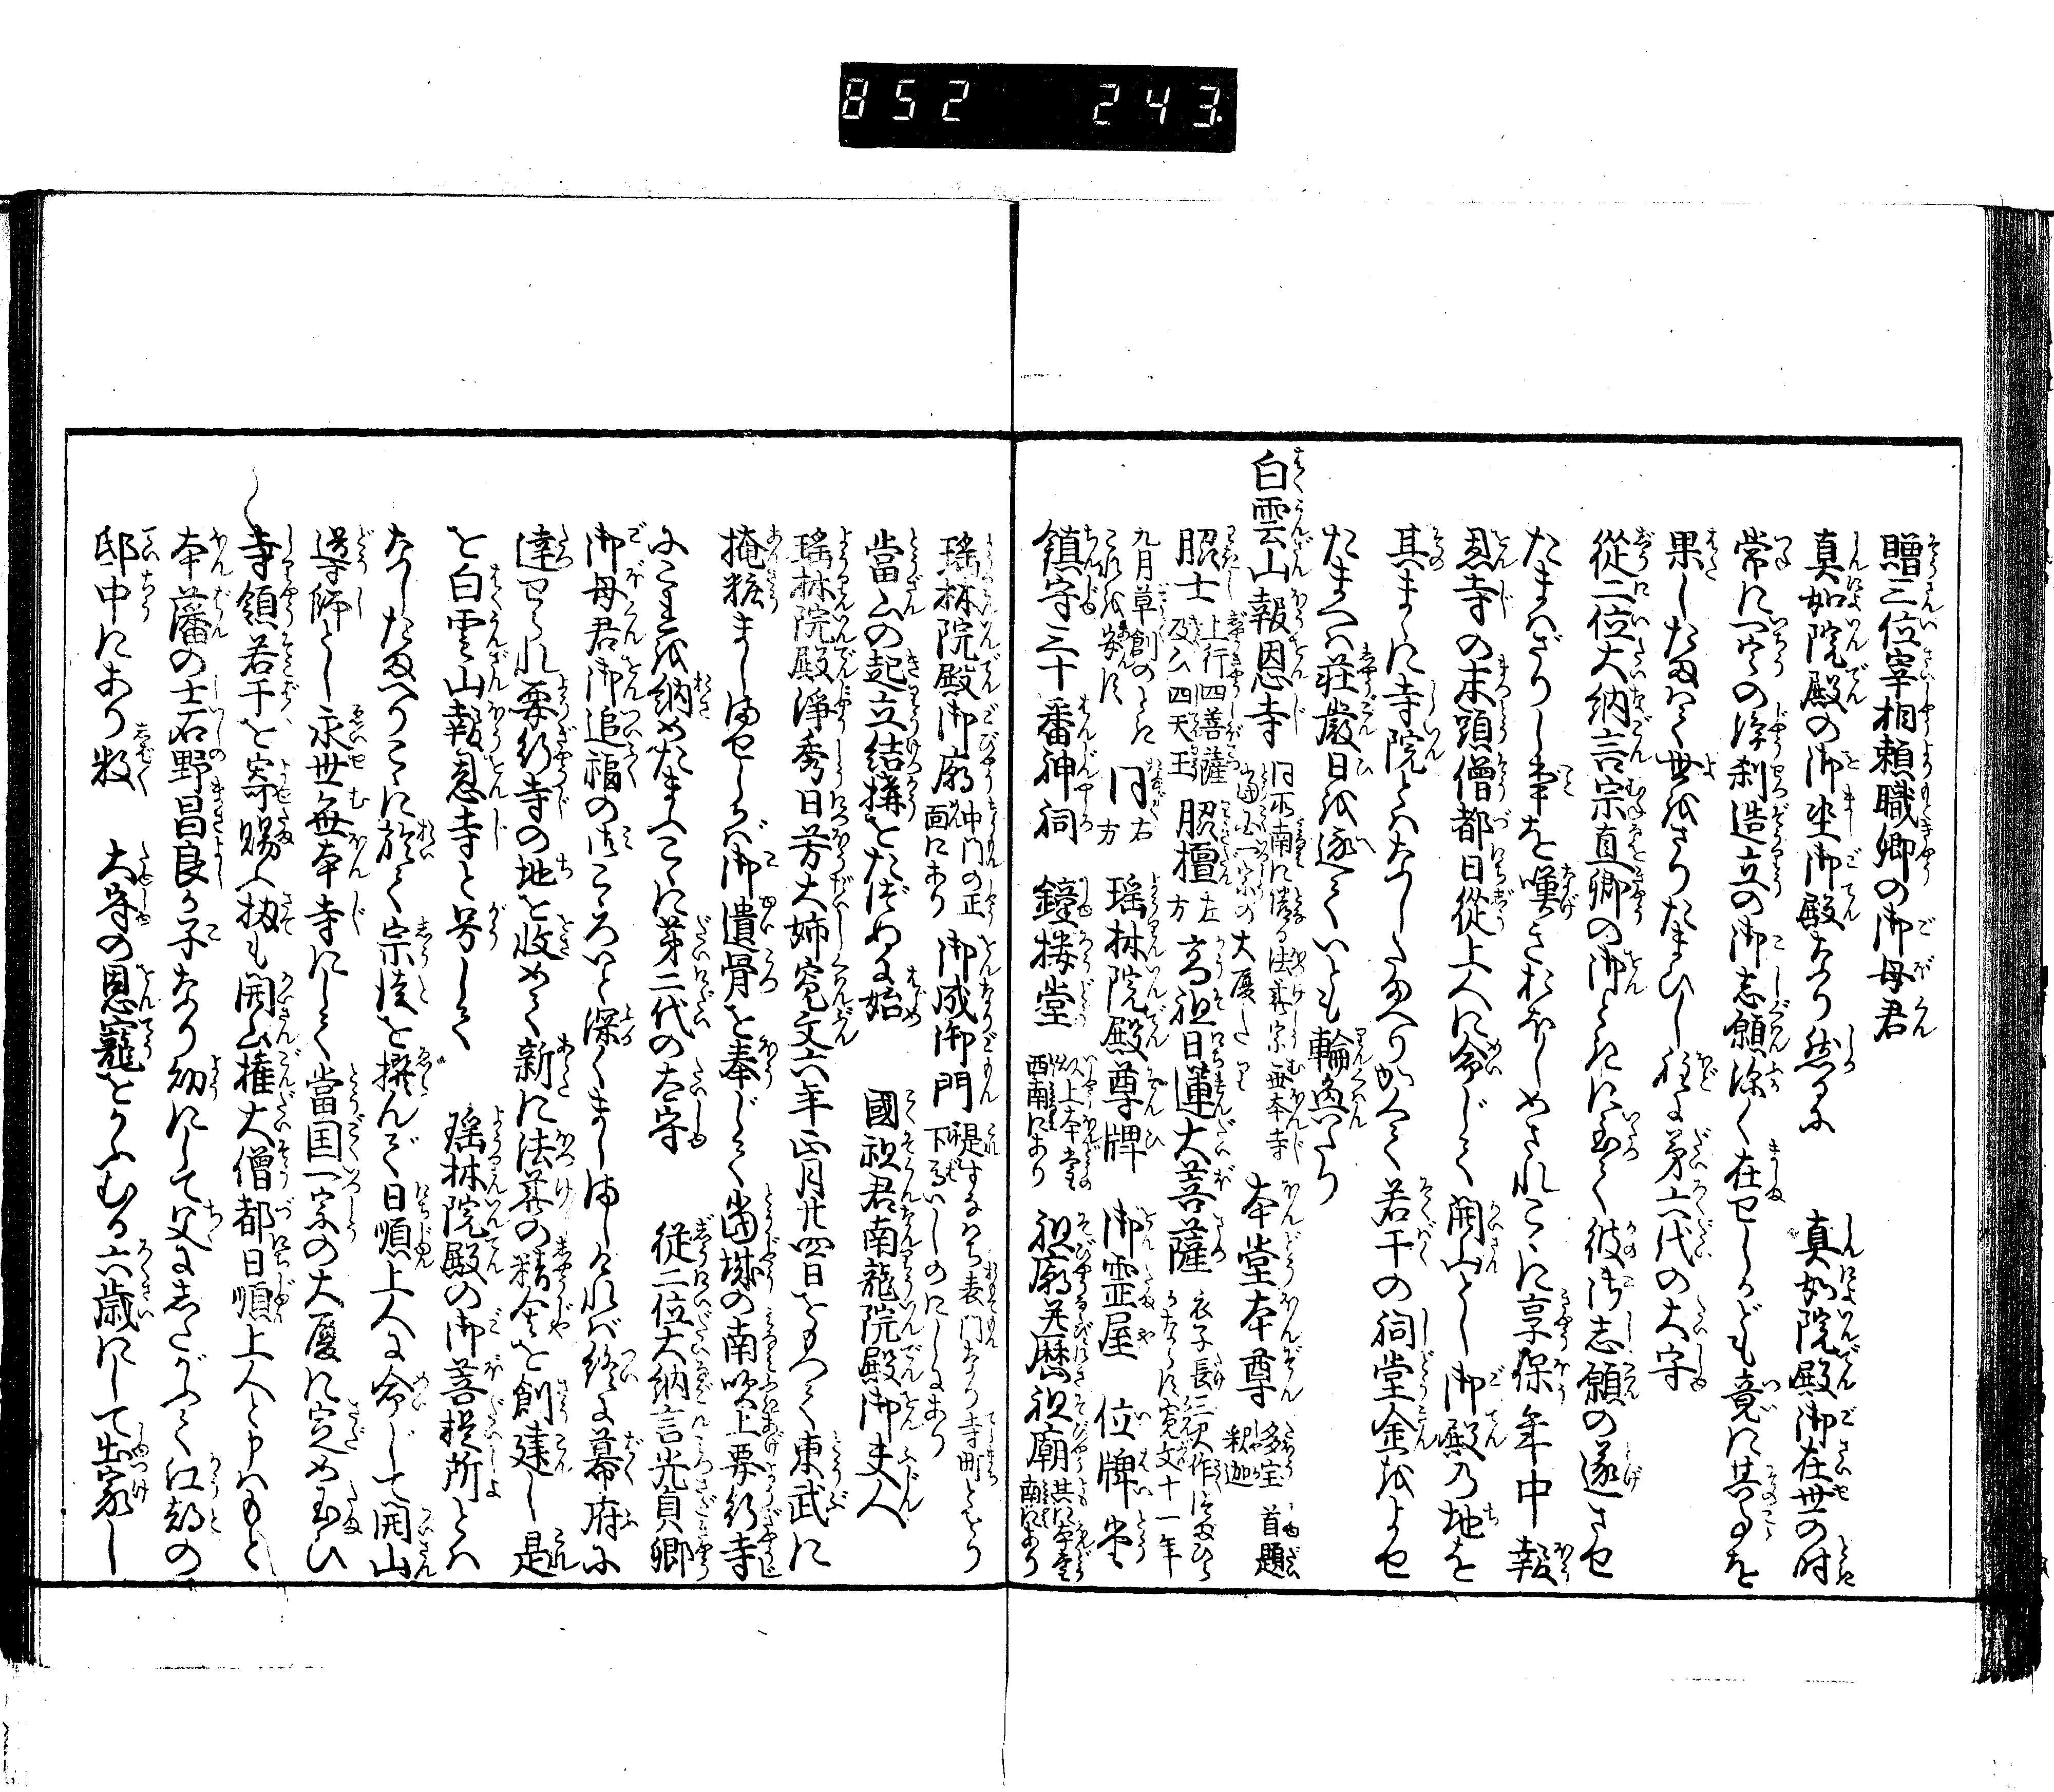 852 243.
贈三位宰相頼職卿の御母君
真如院殿の御坐御殿なり然るに 真如院殿御在世の時
常に一宇の浄刹造立の御志願深く在せしかども竟に其ことを
果したまはで世をさりたまひし程に第六代の太守
従二位大納言宗直卿の御ときに至て彼御志願の遂させ
たまはざりし事を嘆きおぼしめされこゝに享保年中報
恩寺の末頭僧都日従上人に命じて開山とし御殿の地を
其まゝに寺院とはなしたまへりかくて若干の祠堂金をよせ
たまへは荘厳日を逐ていとも輪奐たり
白雲山報恩寺 同所南に隣る法華宗無本寺当国一宗の大厦たり 本堂本尊 多宝釈迦 首題
脇士 上行四菩薩及ひ四天王 脇檀 左方 高祖日蓮大菩薩 衣子長二尺作つまびらかならす寛文十一年
九月草創のときこれを安んす 同右方 瑶林院殿尊牌 御霊屋 位牌堂
鎮守三十番神祠 鐘楼堂 以上本堂の西南にあり 祖廟并歴祖廟 共に本堂の南にあり
瑶林院殿御廟 中門の正面にあり 御成御門 是すなはち表門なり寺町とをり下馬いしのにしにあり
当山の起立結構をたづぬる始 國祖君南龍院殿御夫人
瑶林院殿浄秀日芳大姉寛文六年正月廿四日をもて東武に
掩粧ましませしかば御遺骨を奉じて當城の南吹上要行寺
にこれを納めたまへりこゝに第二代の太守 従二位大納言光貞卿
御母君御追福の御こころいと深くましましければ終に幕府に
達せられ要行寺の地を收めて新に法華の精舎を創建し是
を白雲山報恩寺と号して 瑶林院殿の御菩提所とは
なしたまへりこゝに於て宗徒を撰んで日順上人に命じて開山
導師とし永世無本寺にして當国一宗の大厦に定め玉ひ
寺領若干を寄賜へ扨も開山権大僧都日順上人と申はもと
本藩の士石野昌良が子なり幼にして父にしたがふて江都の
邸中にあり数 太守の恩寵をかふむる六歳にして出家し